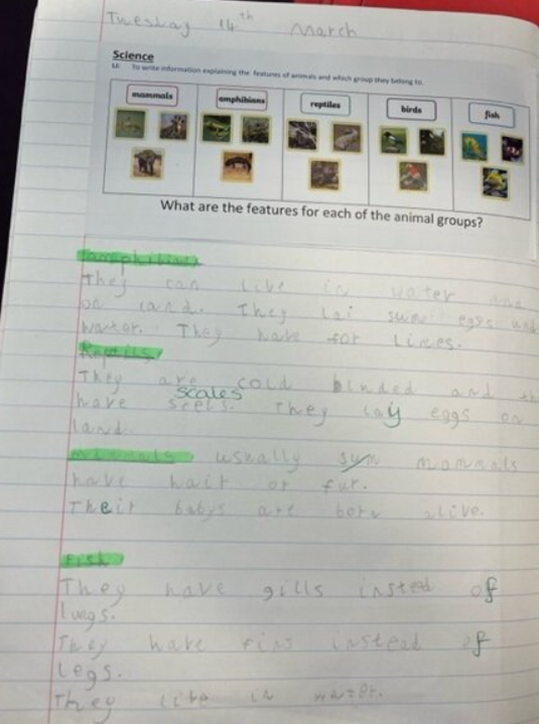 Tuesday 14th March
Science
LI: To write information explaining the features of animals and which group they belong to.
mammals amphibians reptiles birds fish
What are the features for each of the animal groups?
Amphibians
They can live in water and
on land. They lai sum eggs
water. They have for
Reptils
They are cold bluded and
scales
have scels. They lay eggs on
land.
usually sum mammals
have hair or fur.
Their babys are born alive.
Fish
They have gills insted of
lungs.
They have fins instead of
legs.
They live in water.